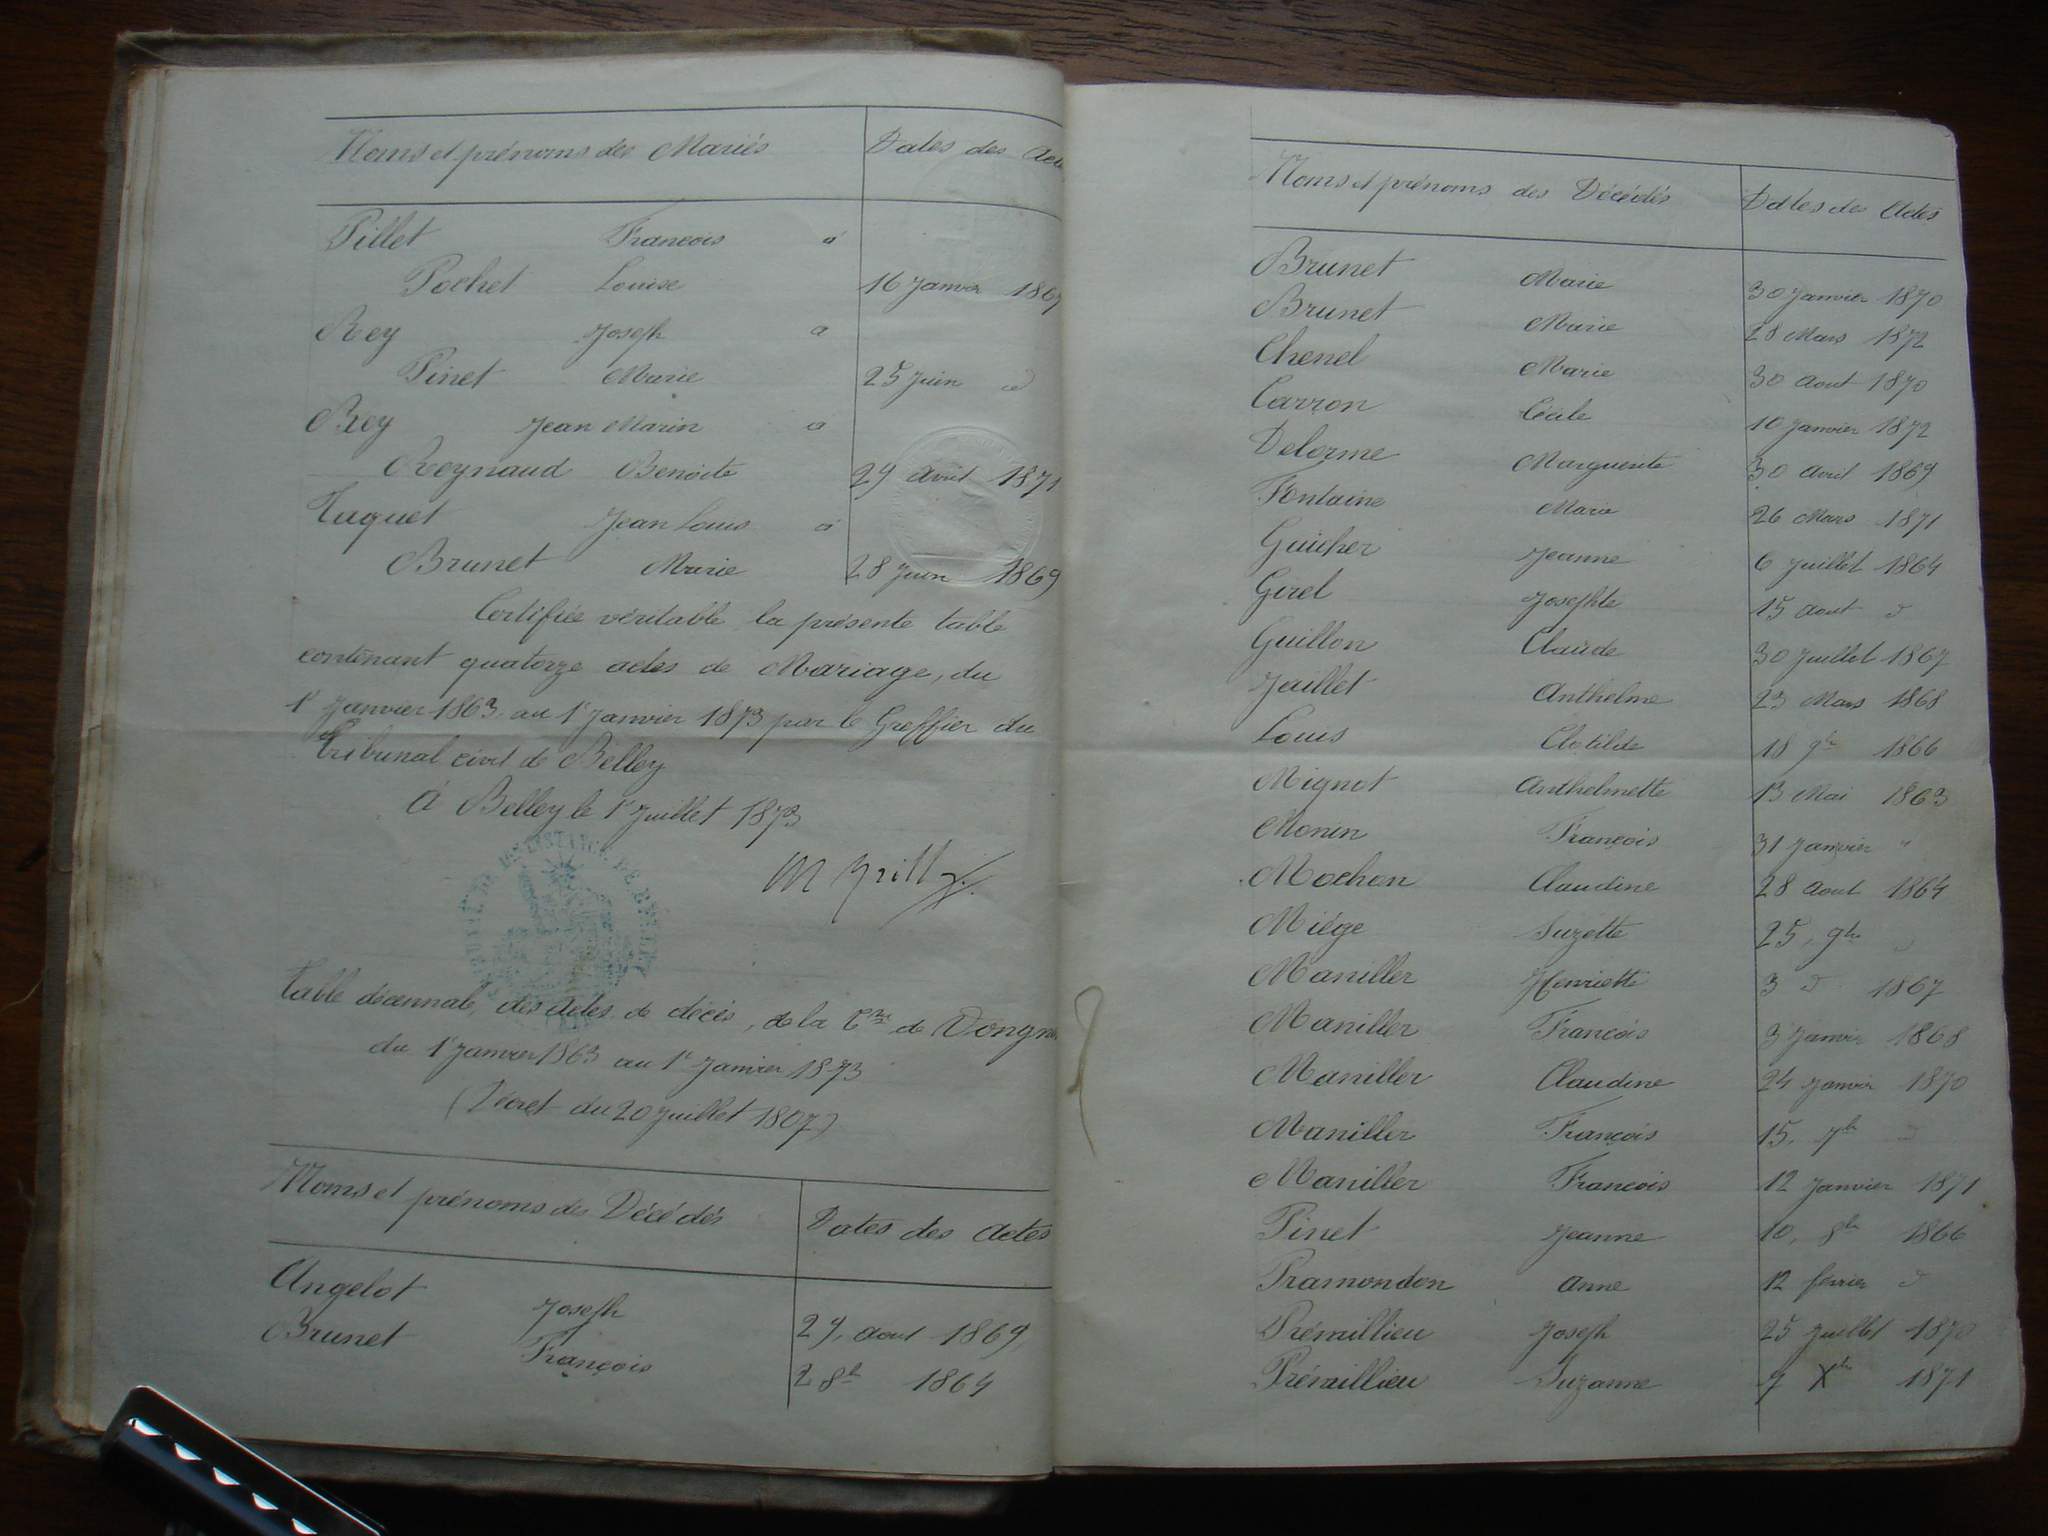 Noms et prénoms des Mariés Dates des Act
Pillet François à
Pochet Louise 16 Janvier 1867
Rey Joseph à
Pinet Marie 25 Juin d
Rey Jean Marin à
Reynaud Benoite 29 avril 1871
Tuquet Jean Louis à
Brunet Marie 28 Juin 1869
Certifiée véritable la présente table
contenant quatorze actes de Mariage, du
1r Janvier 1863 au 1r Janvier 1873 par le Greffier du
Tribunal civil de Belley
à Belley le 1r Juillet 1873
Table décennale, des actes de décès, de la Cne de Dongn
du 1r Janvier 1863 au 1r Janvier 1873
(Décret du 20 Juillet 1807)
Noms et prénoms des Décédés Dates des Actes
Angelot Joseph 29, aout 1869,
Brunet François 2 8b 1864
Noms et prénoms des Décédés Dates des Actes
Brunet Marie 30 Janvier 1870
Brunet Marie 28 Mars 1872
Chenel Marie 30 aout 1870
Carron Cécile 10 Janvier 1872
Delorme Marguerite 30 avril 1869
Fontaine Marie 26 Mars 1871
Guicher Jeanne 6 Juillet 1864
Girel Josephte 15 aout d
Guillon Claude 30 Juillet 1867
Jaillet Anthelme 23 Mars 1868
Louis Clotilde 18 9b 1866
Mignot Anthelmette 13 Mai 1863
Monin François 31 Janvier "
Mochon Claudine 28 aout 1864
Miége Suzette 25, 9b d
Maniller Henriette 3 d 1867
Maniller François 3 Janvier 1868
Maniller Claudine 24 Janvier 1870
Maniller François 15, 7b d
Maniller François 12 Janvier 1871
Pinet Jeanne 10, 8b 1866
Pramondon Anne 12 février d
Prémillieu Joseph 25 Juillet 1870
Prémillieu Suzanne 7 Xbre 1871